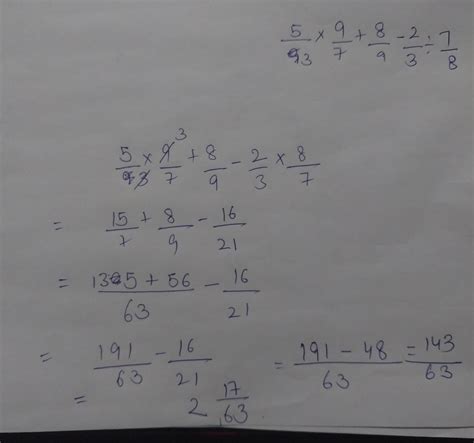 5/3 × 9/7 + 8/9 - 2/3 ÷ 7/8
5/3 × 9/7 + 8/9 - 2/3 × 8/7
3
= 15/7 + 8/9 - 16/21
= 135 + 56/63 - 16/21
= 191/63 - 16/21 = 191 - 48/63 = 143/63
= 2 17/63